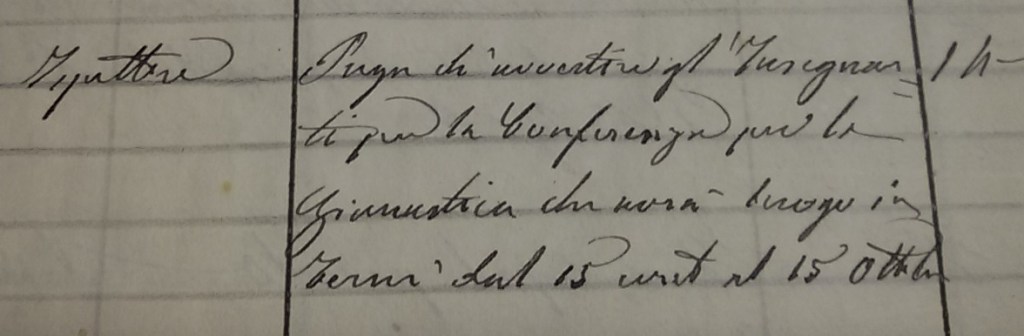 Ispettore Prega di avvertire gl'Insegnan= 14
ti per la Conferenza per la
Ginnastica che avrà luogo in
Terni dal 15 al 15 Ottbr